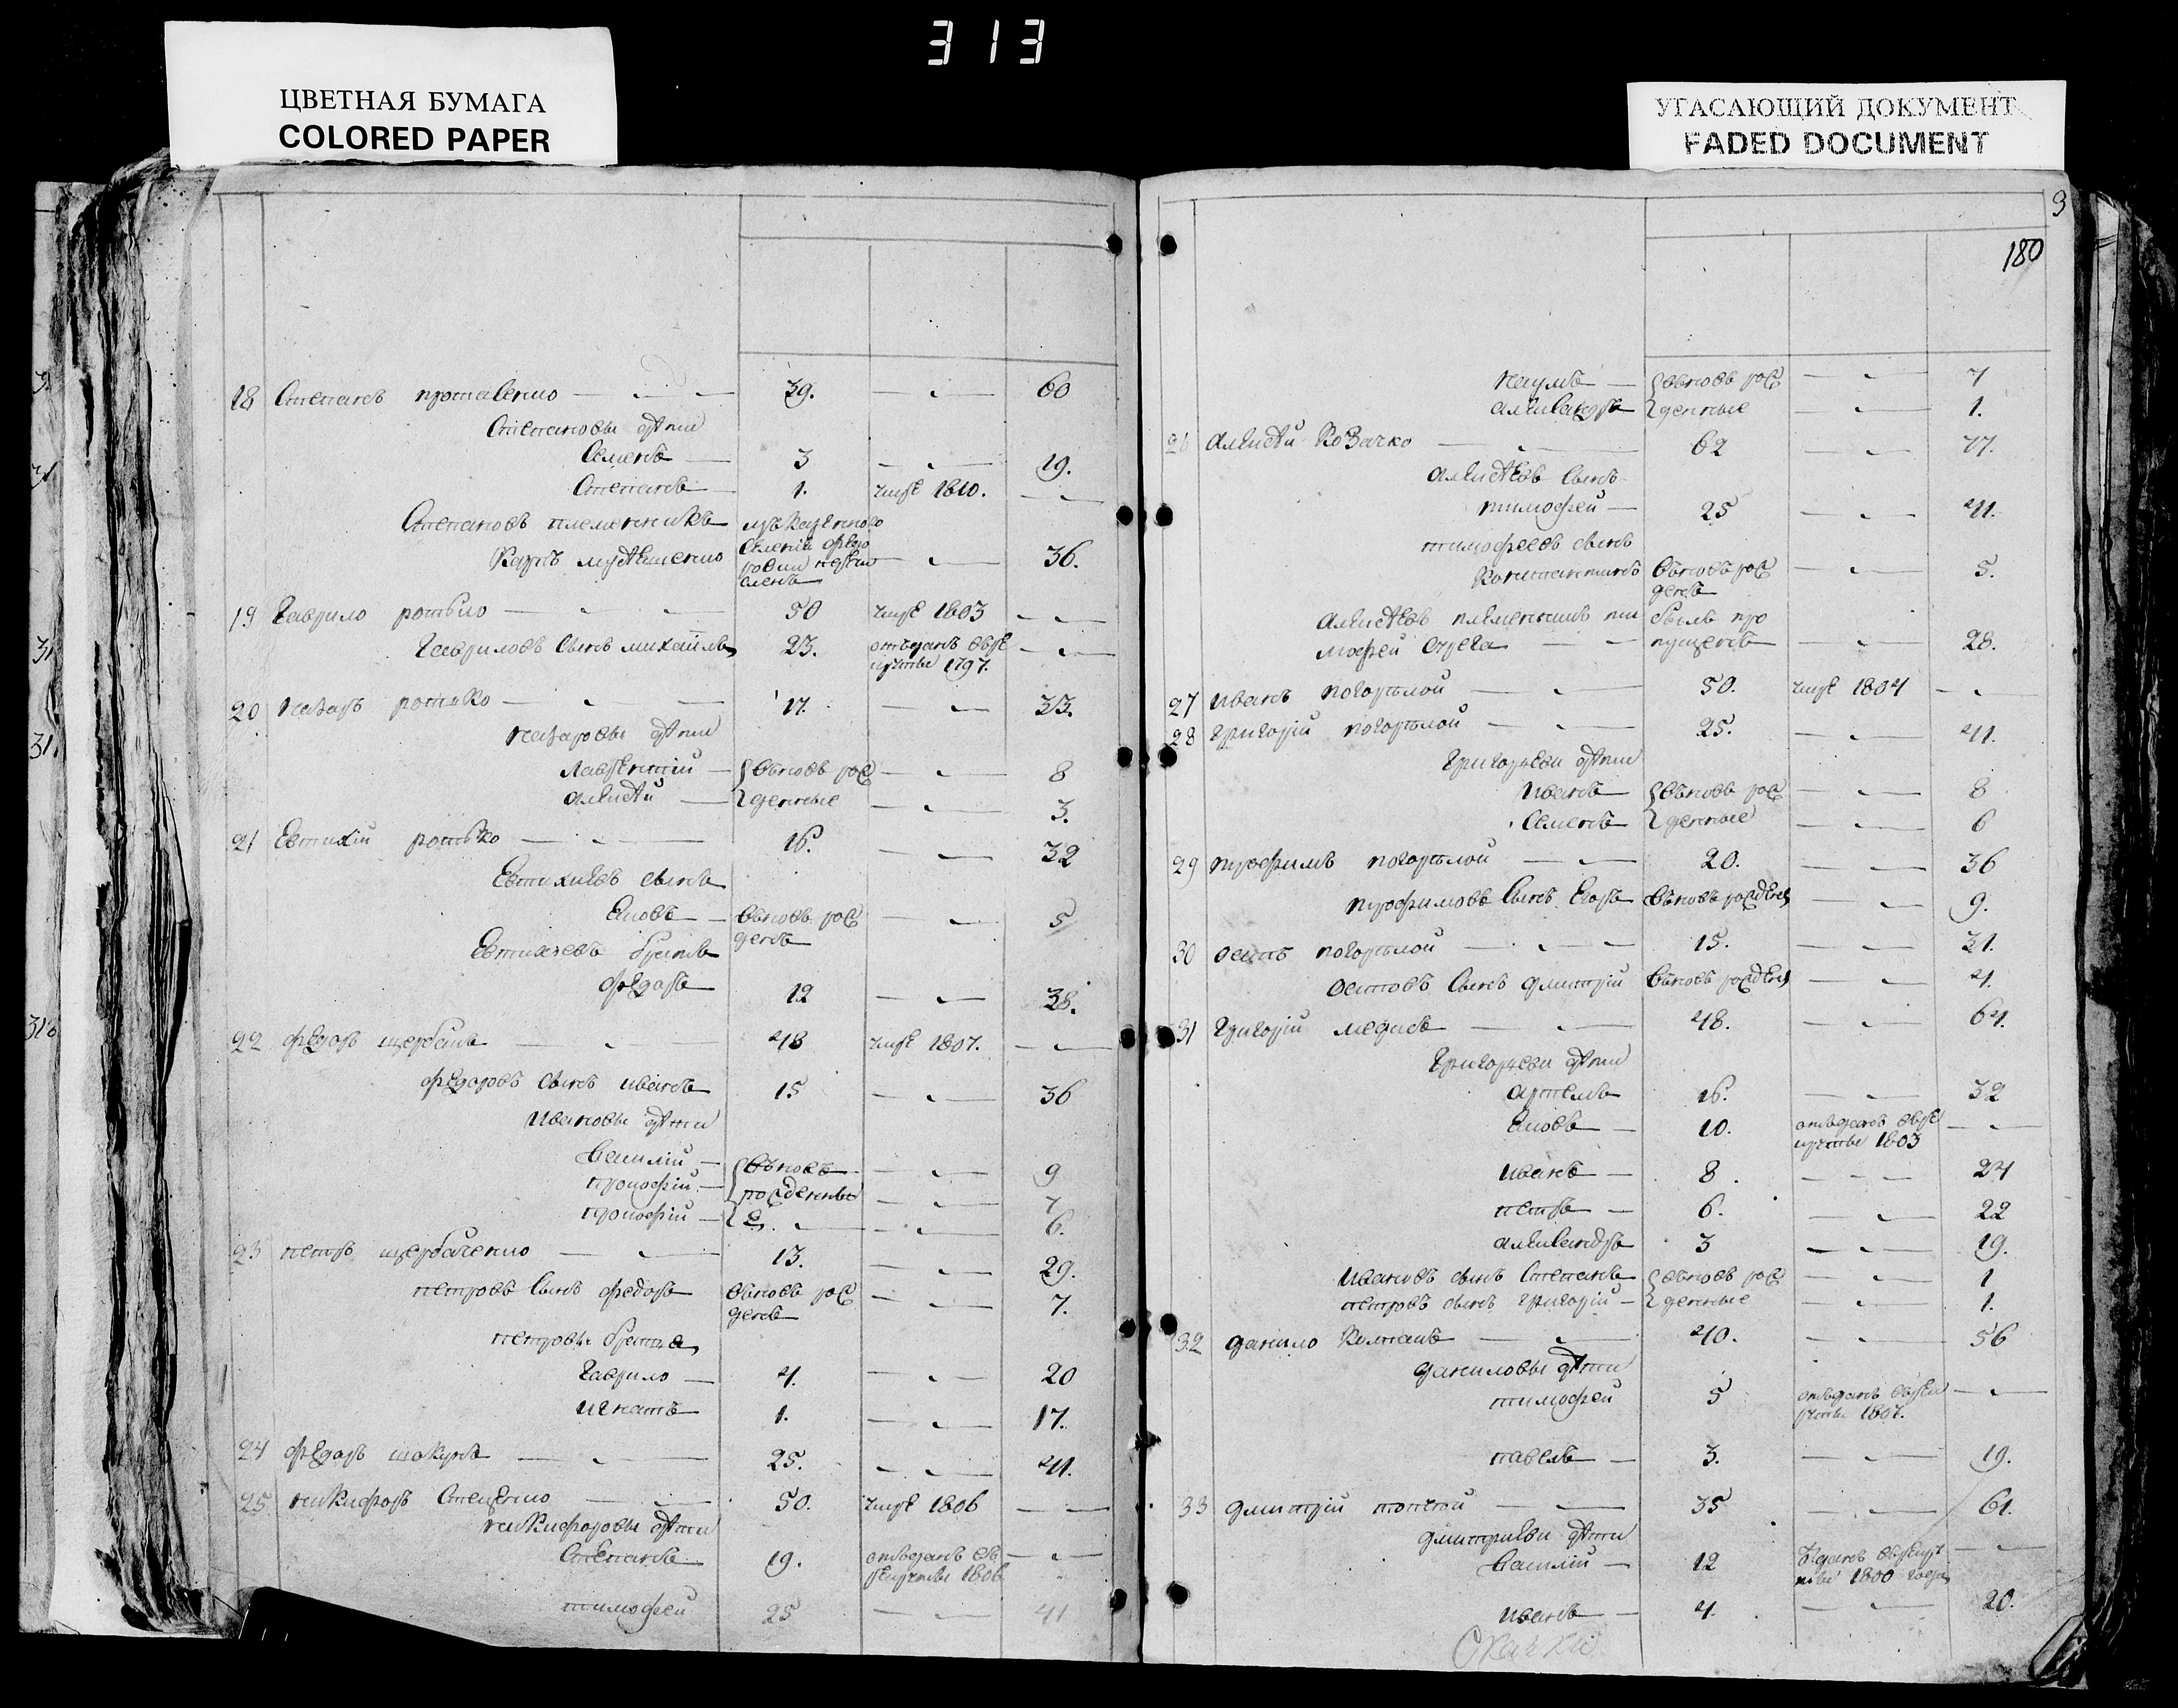 313
ЦВЕТНАЯ БУМАГА
COLORED PAPER
УГАСАЮЩИЙ ДОКУМЕНТ
FADED DOCUMENT
18 Степанъ 39. 60
Степановы дѣти
Семенъ 3 19.
Степанъ 1. умре 1810.
Степановъ племенникъ
Карпъ 36.
19 Гаврило ротько 50 умре 1803
Гавриловъ сынъ михайла 23. отъданъ въре
круты 1797.
20 назаръ ротько 17. 33.
назаровы дѣти
Лаврентій вьновь рож 8
алексѣй денные 3.
21 Евтихій ротько 16. 32
Евтихіевъ сынъ
Яковъ вьновь рож 5
денъ
Евтихіевъ братъ
федоръ 12 38.
22 федоръ щербакъ 48 умре 1807.
федоровъ сынъ иванъ 15 36
ивановы дѣти
василій вьновь 9
прокофій рожденные 7
прокофій 6.
23 петръ щербаченко 13. 29.
петровъ сынъ федоръ вьновь рож 7.
денъ
петровы братья
Гаврило 4. 20
игнатъ 1. 17.
24 федоръ шакуръ 25. 41.
25 никифоръ Стеценко 50. умре 1806
никифоровы дѣти
Степанъ 19. отъданъ въ
рекруты 1806
тимофей 25 41
9
180
наумъ вьновь рож 7
александръ денные 1.
26 алексѣй Козачко 62 77.
алексѣевъ сынъ
тимофей 25 41.
тимофеевъ сынъ
Константинъ вьновь рож 5.
денъ
алексѣевъ племенникъ ти былъ про
мофей пущенъ 28.
27 иванъ погорѣлой 50. умре 1804
28 григорій погорѣлой 25. 41.
григорьеви дѣти
иванъ вьновь рож 8
Семенъ денные 6
29 трофимъ погорѣлой 20. 36
трофимовъ сынъ Егоръ вьновь рожденъ 9.
30 осипъ погорѣлой 15. 31.
осиповъ сынъ дмитрій вьновь рожденъ 4.
31 григорій медикъ 48. 64.
григорьеви дѣти
артемъ 16. 32
Яковъ 10. отъданъ въре
круты 1803
иванъ 8. 24
петръ 6. 22
александръ 3 19.
ивановъ сынъ Степанъ вьновь рож 1
петровъ сынъ григорій денные 1.
32 данило Колпакъ 40. 56
даниловы дѣти
тимофей 5 отъданъ въре
круты 1807.
павелъ 3. 19.
33 дмитрій 35 61.
дмитріеви дѣти
василій 12 отданъ върекру
ты 1800 года
иванъ 4. 20.